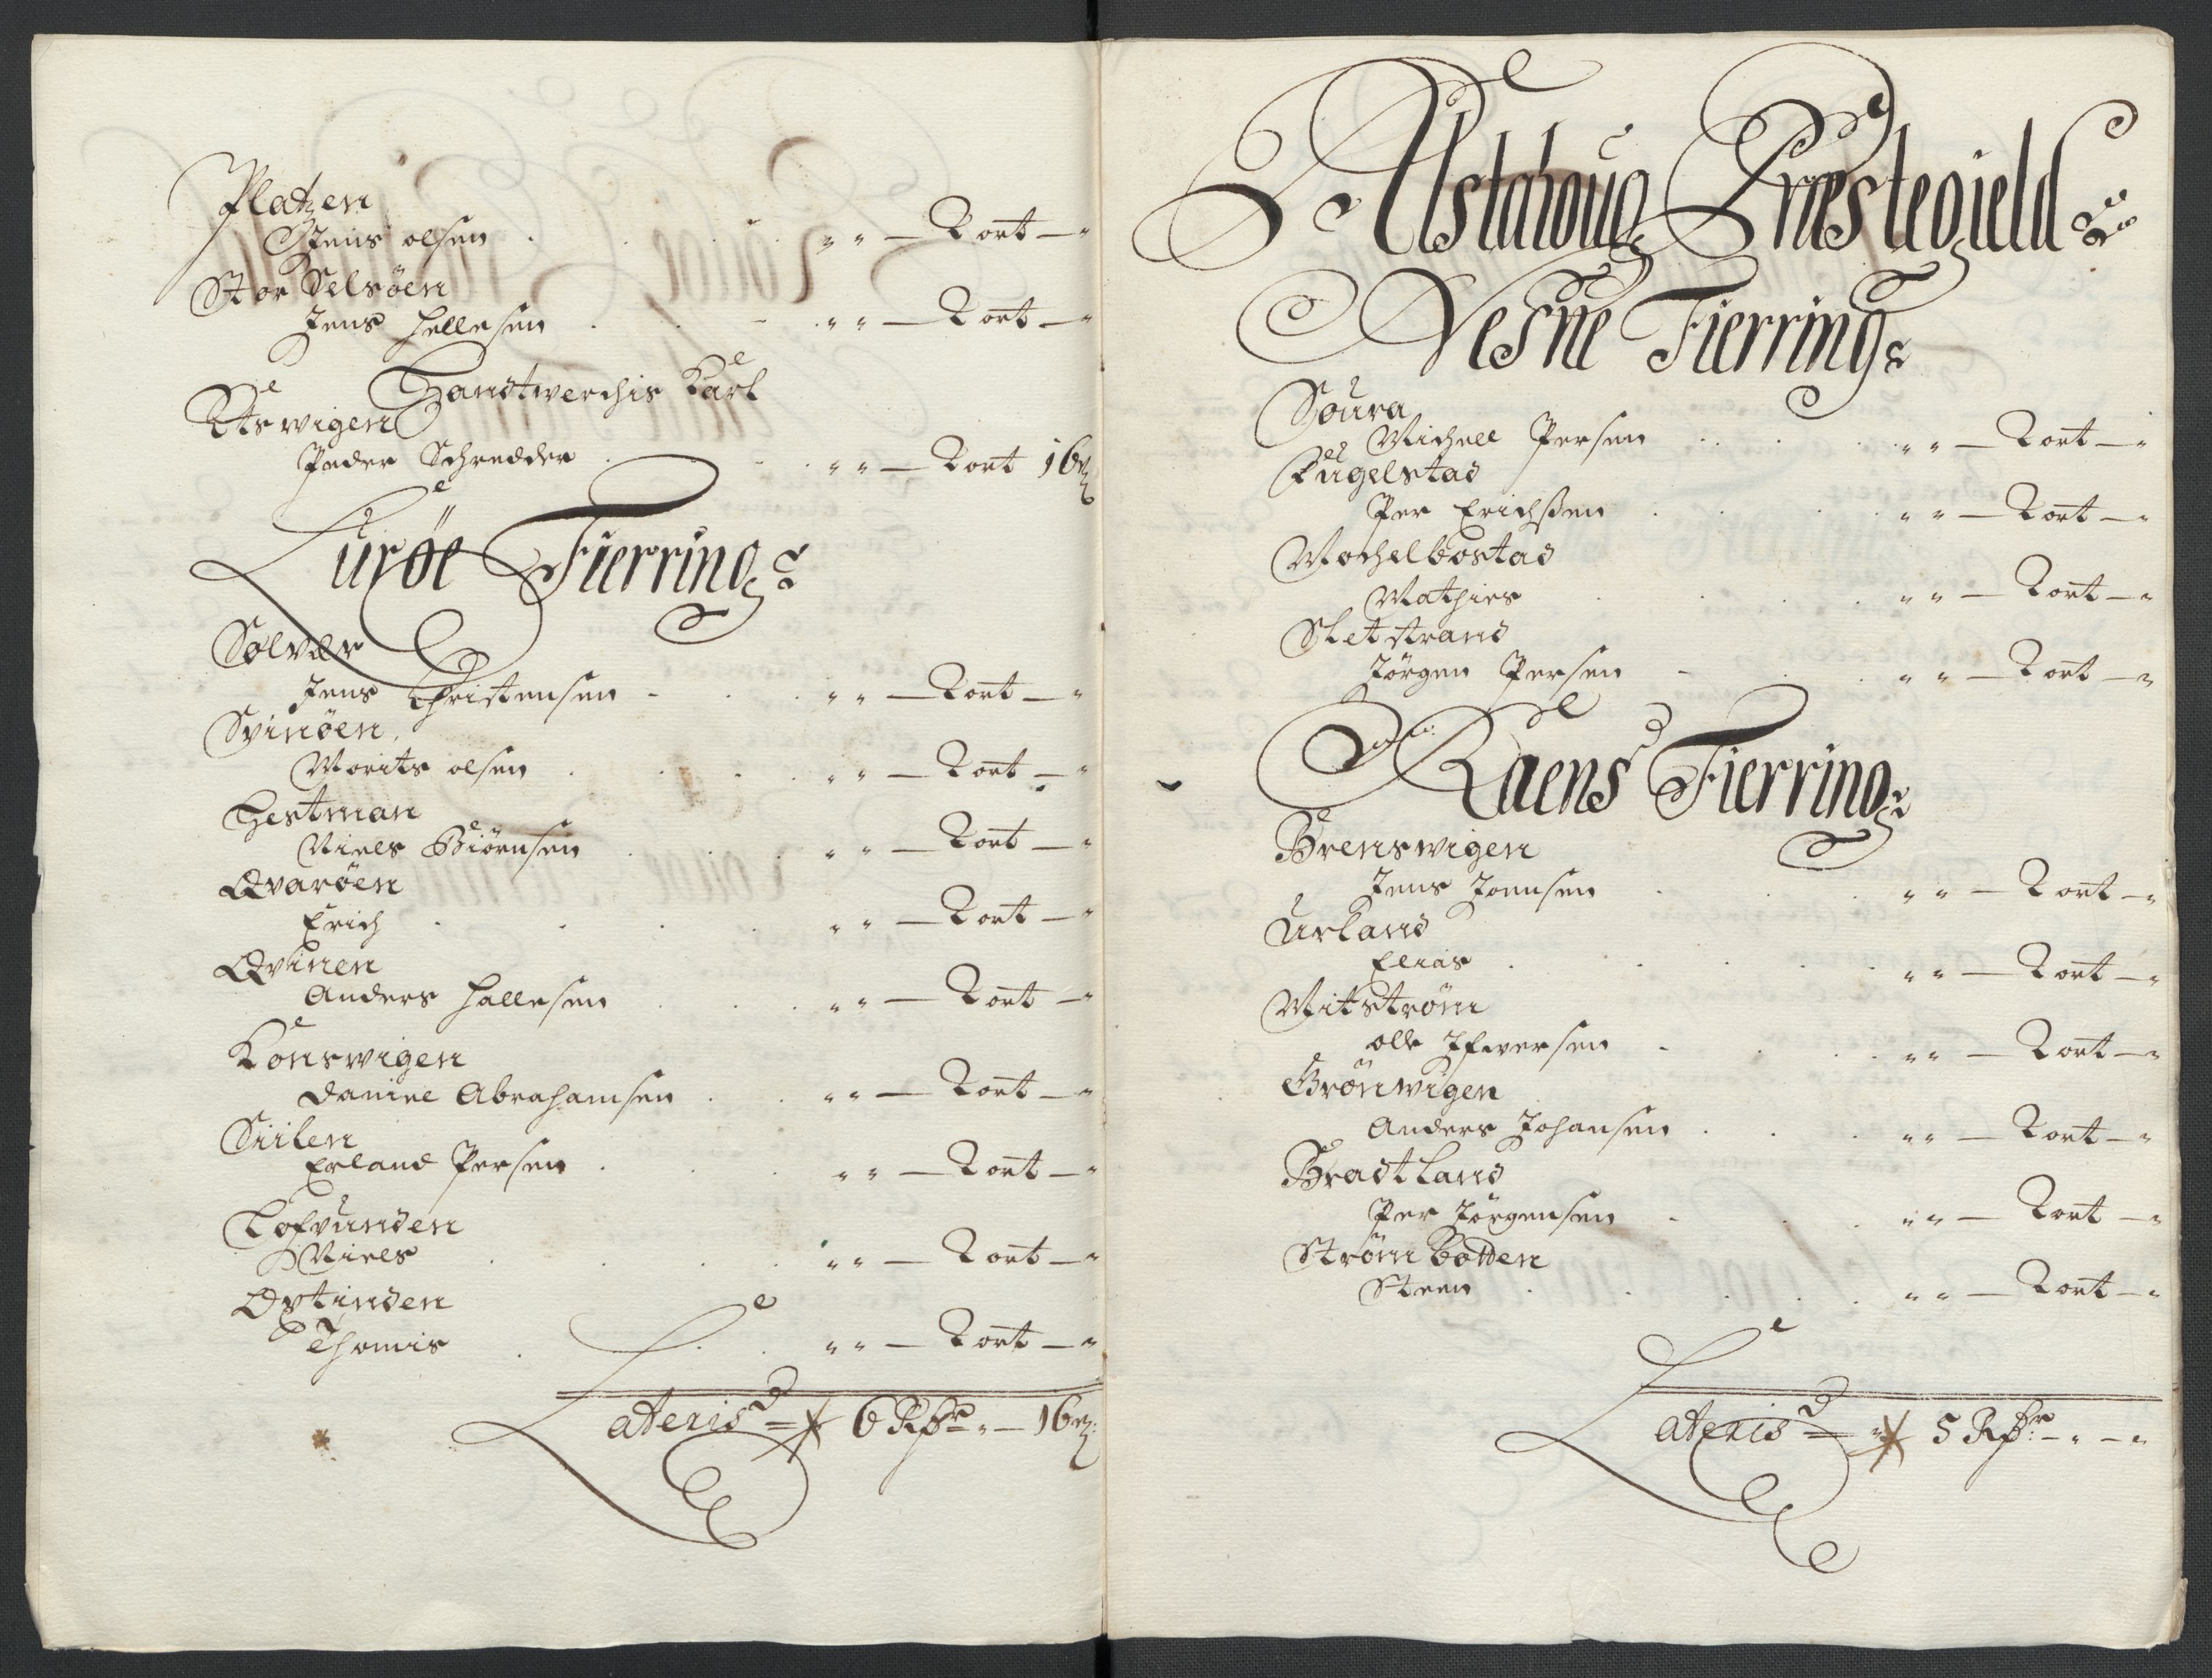 Platzen
Jens olsen . . . . „ „ — 2 ort — „
Stor Selsöen
Jens Hellesen . . - . „ „ — 2 ort — „
Handtwerchis Karl
Utswigen
Peder Schredder . . . „ „ — 2 ort 16 ß
Luröe Fierring
Solvær
Jens Christensen - . . „ „ — 2 ort — „
Svinöen
Morits olsen . . . . „ „ — 2 ort — „
Hestman
Niels Biörnsen . . . „ „ — 2 ort — „
Qvaröen
Erich . . . . „ „ — 2 ort — „
Qvinen
Anders Hallesen . . . „ „ — 2 ort — „
Konswigen
Daniel Abrahamsen . . „ „ — 2 ort — „
Siilen
Erland Persen . . . „ „ — 2 ort — „
Lofvunden
Niels . . . . „ „ — 2 ort — „
Oxtinden
Thomis . . . „ „ — 2 ort — „
Lateris = 6 Rdr „ — 16 ß
Alstahoug Præstegield
Nesne Fierring
Soura
Michell Persen . . . „ „ — 2 ort — „
Fugelstad
Per Erichsen . . . „ „ — 2 ort — „
Mochelbostad
Mathies . . . . „ „ — 2 ort — „
Sletstrand
Jörgen Persen - . . „ „ — 2 ort — „
Raens Fierring
Brenswigen
Jens Jonsen . . . „ „ — 2 ort — „
Urland
Elias . . . . „ „ — 2 ort — „
Mitström
olle Ifversen - . . „ „ — 2 ort — „
Grönwigen
Anders Johansen . . . „ „ — 2 ort — „
Bradtland
Per Jörgensen - . . „ „ — 2 ort — „
Ström Botten
Steen . . . . „ „ — 2 ort — „
Lateris = 5 Rdr — „ — „